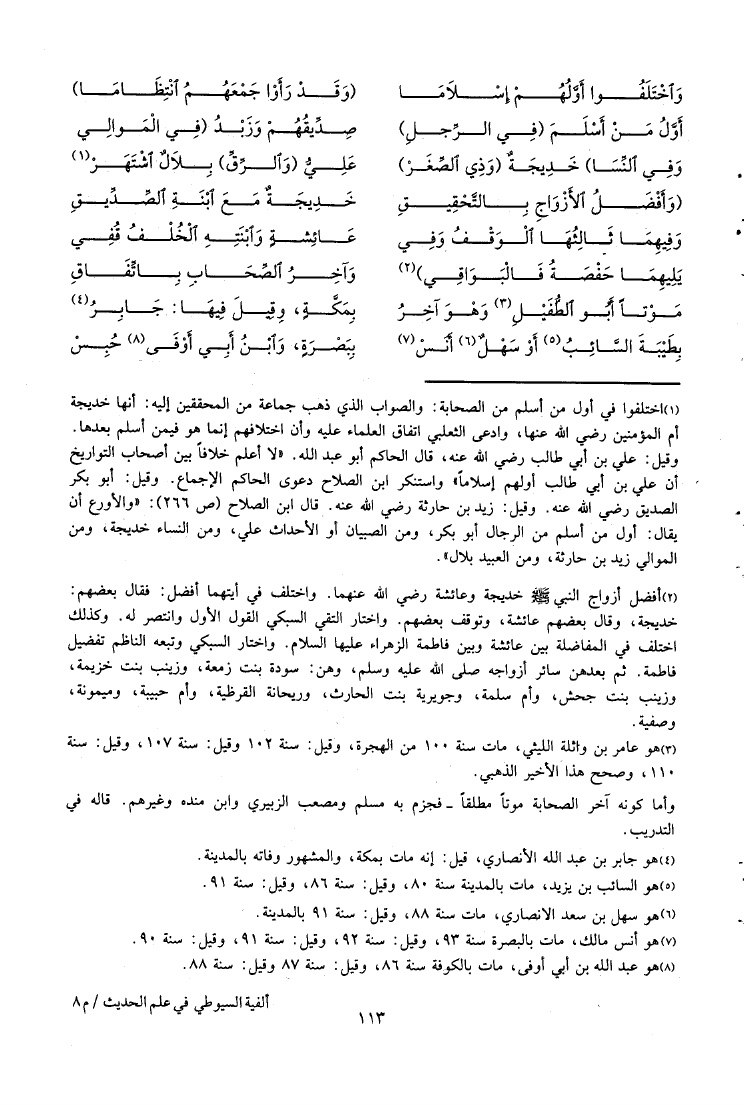 وَاخْتَلَفُوا أَوَّلُهُمْ إِسْلَامَا (وَقَدْ رَأَوْا جَمْعَهُمُ انْتِظَامَا)
أَوَّلُ مَنْ أَسْلَمَ (فِي الرِّجَالِ) صِدِّيقُهُمْ وَزَيْدُ (فِي الْمَوَالِي
وَفِي النِّسَا) خَدِيجَةٌ (وَذِي الصِّغَرْ) عَلِيُّ (وَالرِّقِّ) بِلَالٌ اشْتَهَرْ(١)
(وَأَفْضَلُ الْأَزْوَاجِ بِالتَّحْقِيقِ خَدِيجَةٌ مَعَ ابْنَةِ الصِّدِّيقِ
وَفِيهِمَا ثَالِثُهَا الْوَقْفُ وَفِي عَائِشَةٍ وَابْنَتِهِ الْخُلْفُ قُفِي
يَلِيهِمَا حَفْصَةُ فَالْبَوَاقِي)(٢) وَآخِرُ الصِّحَابِ بِاتِّفَاقِ
مَوْتاً أَبُو الطُّفَيْلِ(٣) وَهْوَ آخِرُ بِمَكَّةٍ، وَقِيلَ فِيهَا: جَابِرُ(٤)
بِطَيْبَةَ السَّائِبُ(٥) أَوْ سَهْلٌ(٦) أَنَسْ(٧) بِبَصْرَةٍ، وَابْنُ أَبِي أَوْفَى(٨) حُبِسْ
(١)اختلفوا في أول من أسلم من الصحابة: والصواب الذي ذهب جماعة من المحققين إليه: أنها خديجة
أم المؤمنين رضي الله عنها، وادعى الثعلبي اتفاق العلماء عليه وأن اختلافهم إنما هو فيمن أسلم بعدها.
وقيل: علي بن أبي طالب رضي الله عنه، قال الحاكم أبو عبد الله. «لا أعلم خلافاً بين أصحاب التواريخ
أن علي بن أبي طالب أولهم إسلاماً» واستنكر ابن الصلاح دعوى الحاكم الإجماع. وقيل: أبو بكر
الصديق رضي الله عنه. وقيل: زيد بن حارثة رضي الله عنه. قال ابن الصلاح (ص ٢٦٦): «والأورع أن
يقال: أول من أسلم من الرجال أبو بكر، ومن الصبيان أو الأحداث علي، ومن النساء خديجة، ومن
الموالي زيد بن حارثة، ومن العبيد بلال».
(٢)أفضل أزواج النبي ﷺ خديجة وعائشة رضي الله عنهما. واختلف في أيتهما أفضل: فقال بعضهم:
خديجة، وقال بعضهم عائشة، وتوقف بعضهم. واختار التقي السبكي القول الأول وانتصر له. وكذلك
اختلف في المفاضلة بين عائشة وبين فاطمة الزهراء عليها السلام. واختار السبكي وتبعه الناظم تفضيل
فاطمة. ثم بعدهن سائر أزواجه صلى الله عليه وسلم، وهن: سودة بنت زمعة، وزينب بنت خزيمة،
وزينب بنت جحش، وأم سلمة، وجويرية بنت الحارث، وريحانة القرظية، وأم حبيبة، وميمونة،
وصفية.
(٣)هو عامر بن واثلة الليثي، مات سنة ١٠٠ من الهجرة، وقيل: سنة ١٠٢ وقيل: سنة ١٠٧، وقيل: سنة
١١٠، وصحح هذا الأخير الذهبي.
وأما كونه آخر الصحابة موتاً مطلقاً ـ فجزم به مسلم ومصعب الزبيري وابن منده وغيرهم. قاله في
التدريب.
(٤)هو جابر بن عبد الله الأنصاري، قيل: إنه مات بمكة، والمشهور وفاته بالمدينة.
(٥)هو السائب بن يزيد، مات بالمدينة سنة ٨٠، وقيل: سنة ٨٦، وقيل: سنة ٩١.
(٦)هو سهل بن سعد الانصاري، مات سنة ٨٨، وقيل: سنة ٩١ بالمدينة.
(٧)هو أنس مالك، مات بالبصرة سنة ٩٣، وقيل: سنة ٩٢، وقيل: سنة ٩١، وقيل: سنة ٩٠.
(٨)هو عبد الله بن أبي أوفى، مات بالكوفة سنة ٨٦، وقيل: سنة ٨٧ وقيل: سنة ٨٨.
ألفية السيوطي في علم الحديث / م ٨
١١٣